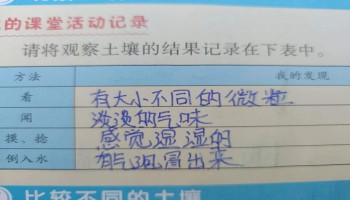 的课堂活动记录
请将观察土壤的结果记录在下表中。
方法 我的发现
看 有大小不同的微粒
闻 淡淡的气味
摸、捻 感觉湿湿的
倒入水 有气泡冒出来
比较不同的土壤